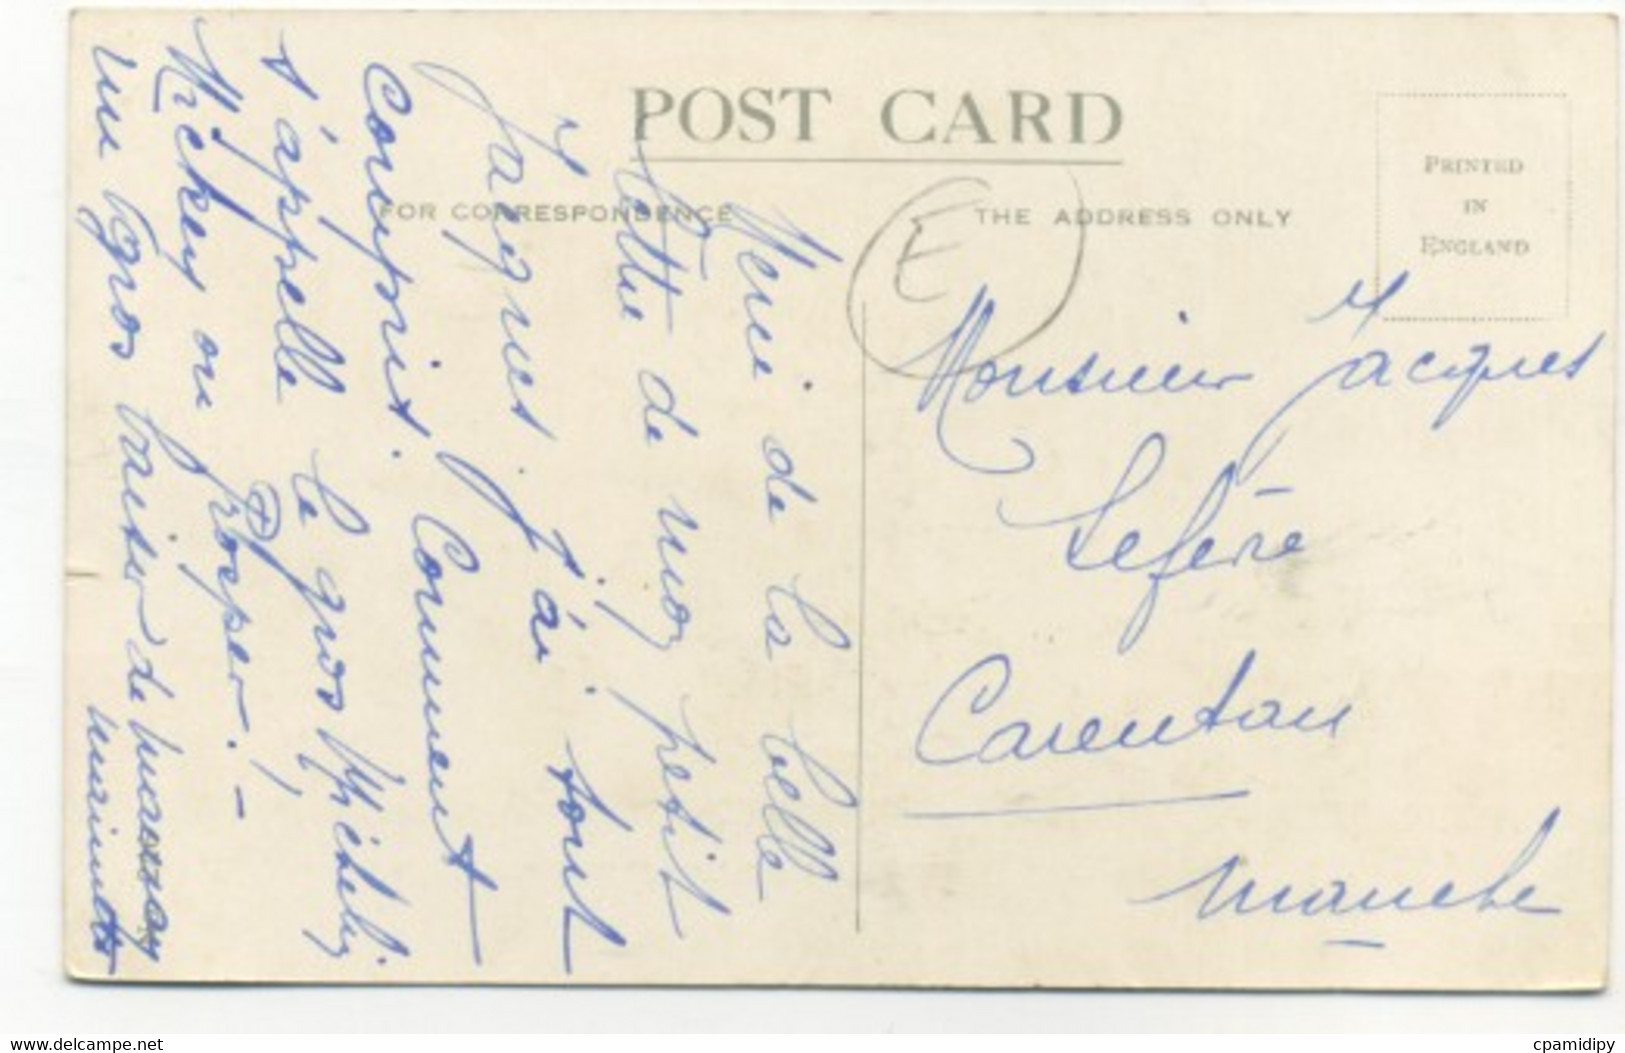 POST CARD
FOR CORRESPONDENCE
THE ADDRESS ONLY
PRINTED
IN
ENGLAND
E
Merci de la belle
lettre de mon petit
Jacques. J'ai tout
compris. Comment
s'appelle le gros
Mickey ou Prosper! -
un gros baiser de
Monsieur Jacques
Lefèvre
Carentan
Manche
www.delcampe.net
cpamidipy